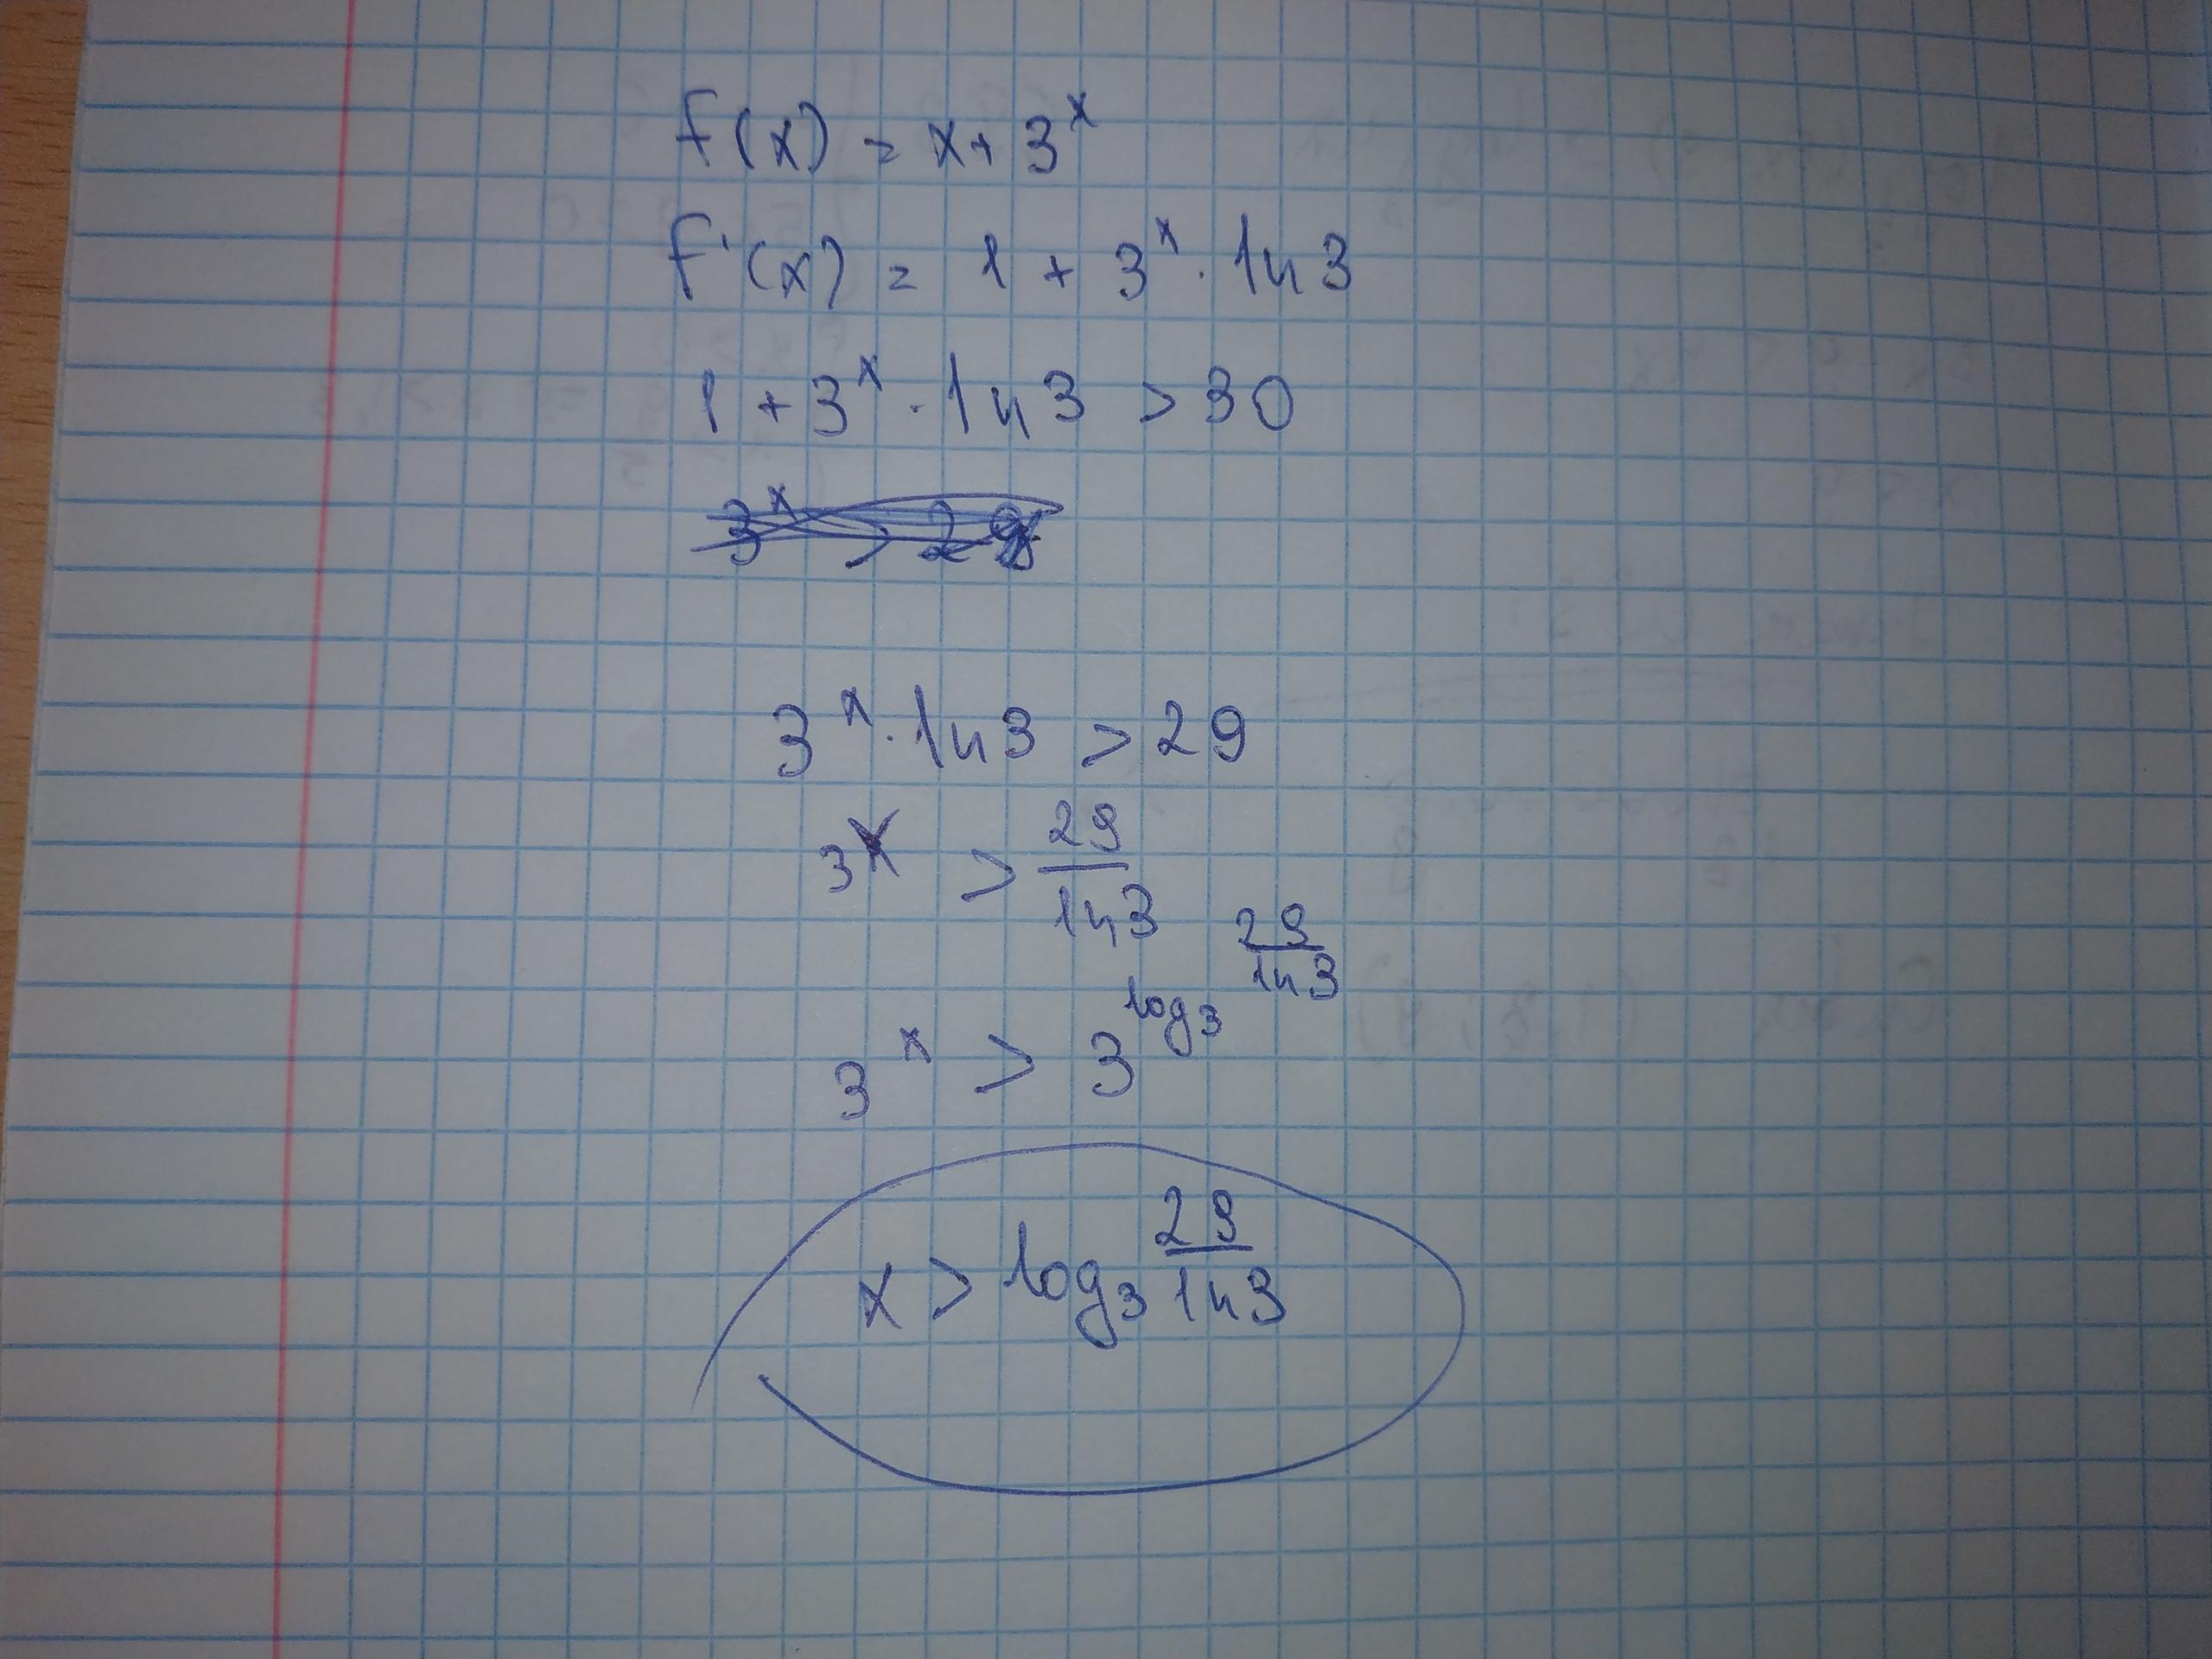 f(x) = x + 3^x
f'(x) = 1 + 3^x · ln 3
1 + 3^x · ln 3 > 30
3^x > 29
3^x · ln 3 > 29
3^x > 29/ln 3
3^x > 3^(log_3 29/ln 3)
x > log_3 29/ln 3